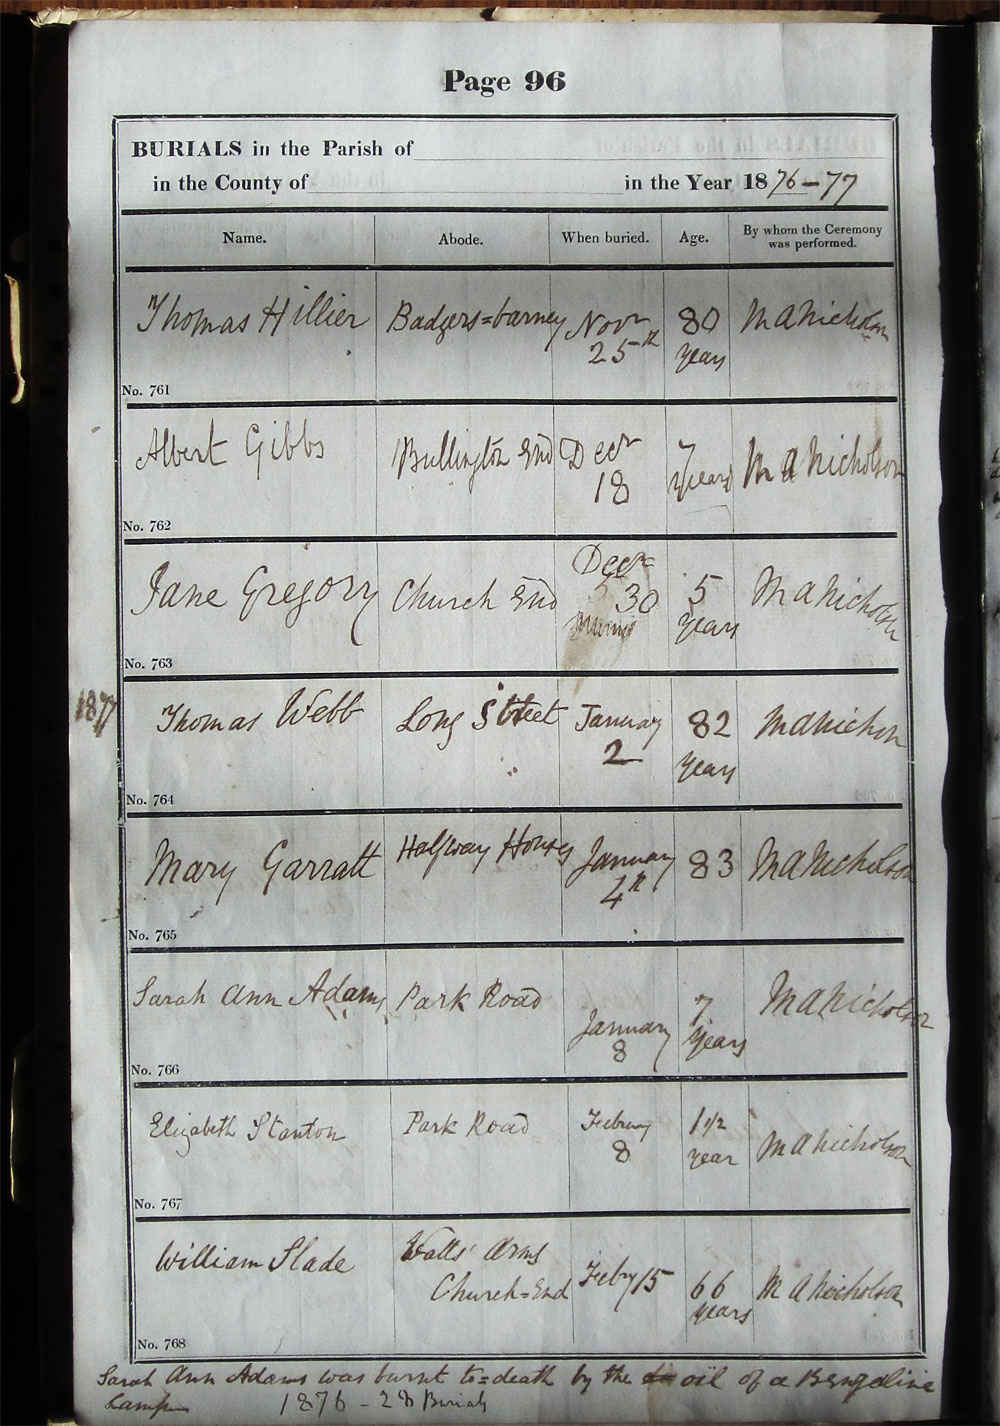 Page 96
BURIALS in the Parish of
in the County of in the Year 1876-77
Name. Abode. When buried. Age. By whom the Ceremony was performed.
Thomas Hillier Badgers=barney Novr 25th 80 years M A Nicholson
No. 761
Albert Gibbs Bullington End Decr 18 7 years M A Nicholson
No. 762
Jane Gregory Church End Decr 30 5 years M A Nicholson
No. 763
1877 Thomas Webb Long Street January 2 82 years M A Nicholson
No. 764
Mary Garratt Halfway Houses January 4th 83 M A Nicholson
No. 765
Sarah Ann Adams Park Road January 8 7 years M A Nicholson
No. 766
Elizabeth Stanton Park Road February 8 1 1/2 year M A Nicholson
No. 767
William Slade Watts' Arms Church=End Feby 15 66 years M A Nicholson
No. 768
Sarah Ann Adams was burnt to=death by the oil of a Bengaline
Lamp
1876 - 28 Burials